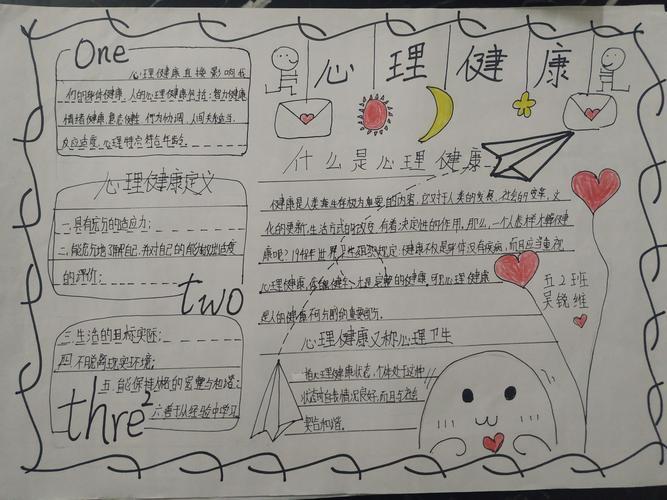 One
心理健康直接影响我
们的身体健康。人的心理健康包括：智力健康
情绪健康 意志健全 行为协调 人间关系适当、
反应适度、心理特点符合年龄。
心理健康定义
一.具有充分的适应力；
二.能充分地了解自己，并对自己的能力做出适度
的评价；
two
三.生活的目标实际；
四.不脱离现实环境；
五.能保持人格的完整与和谐；
六.善于从经验中学习
three
心理健康
什么是心理健康
健康是人类赖生存极为重要的内容，它对于人类的发展，社会的变革，文
化的更新，生活方式的改变 有着决定性的作用。那么，一个人怎样才算健
康呢？1948年世界卫生组织规定：健康不仅是身体没有疾病，而且应当重视
心理健康，
才是完整的健康，可见心理健康
是人的健康不可分割的重要部分。
心理健康又称心理卫生
指心理健康状态，个体处于这种
状态时自我情况良好，而且与社会
契合和谐。
五2班
吴锐维